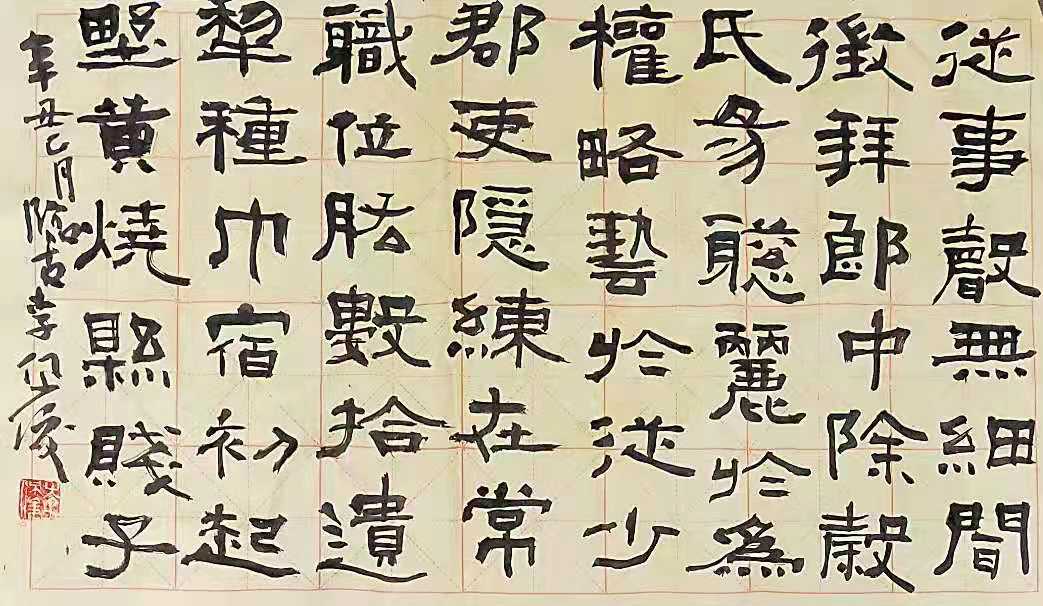 從事聲無細間
徵拜郎中除穀
氏彖聽麗於為
權略藝於從少
郡吏隱練在常
職位胳數拾遺
犂種巾宿初起
野黃燒縣賤子
辛丑七月臨古李